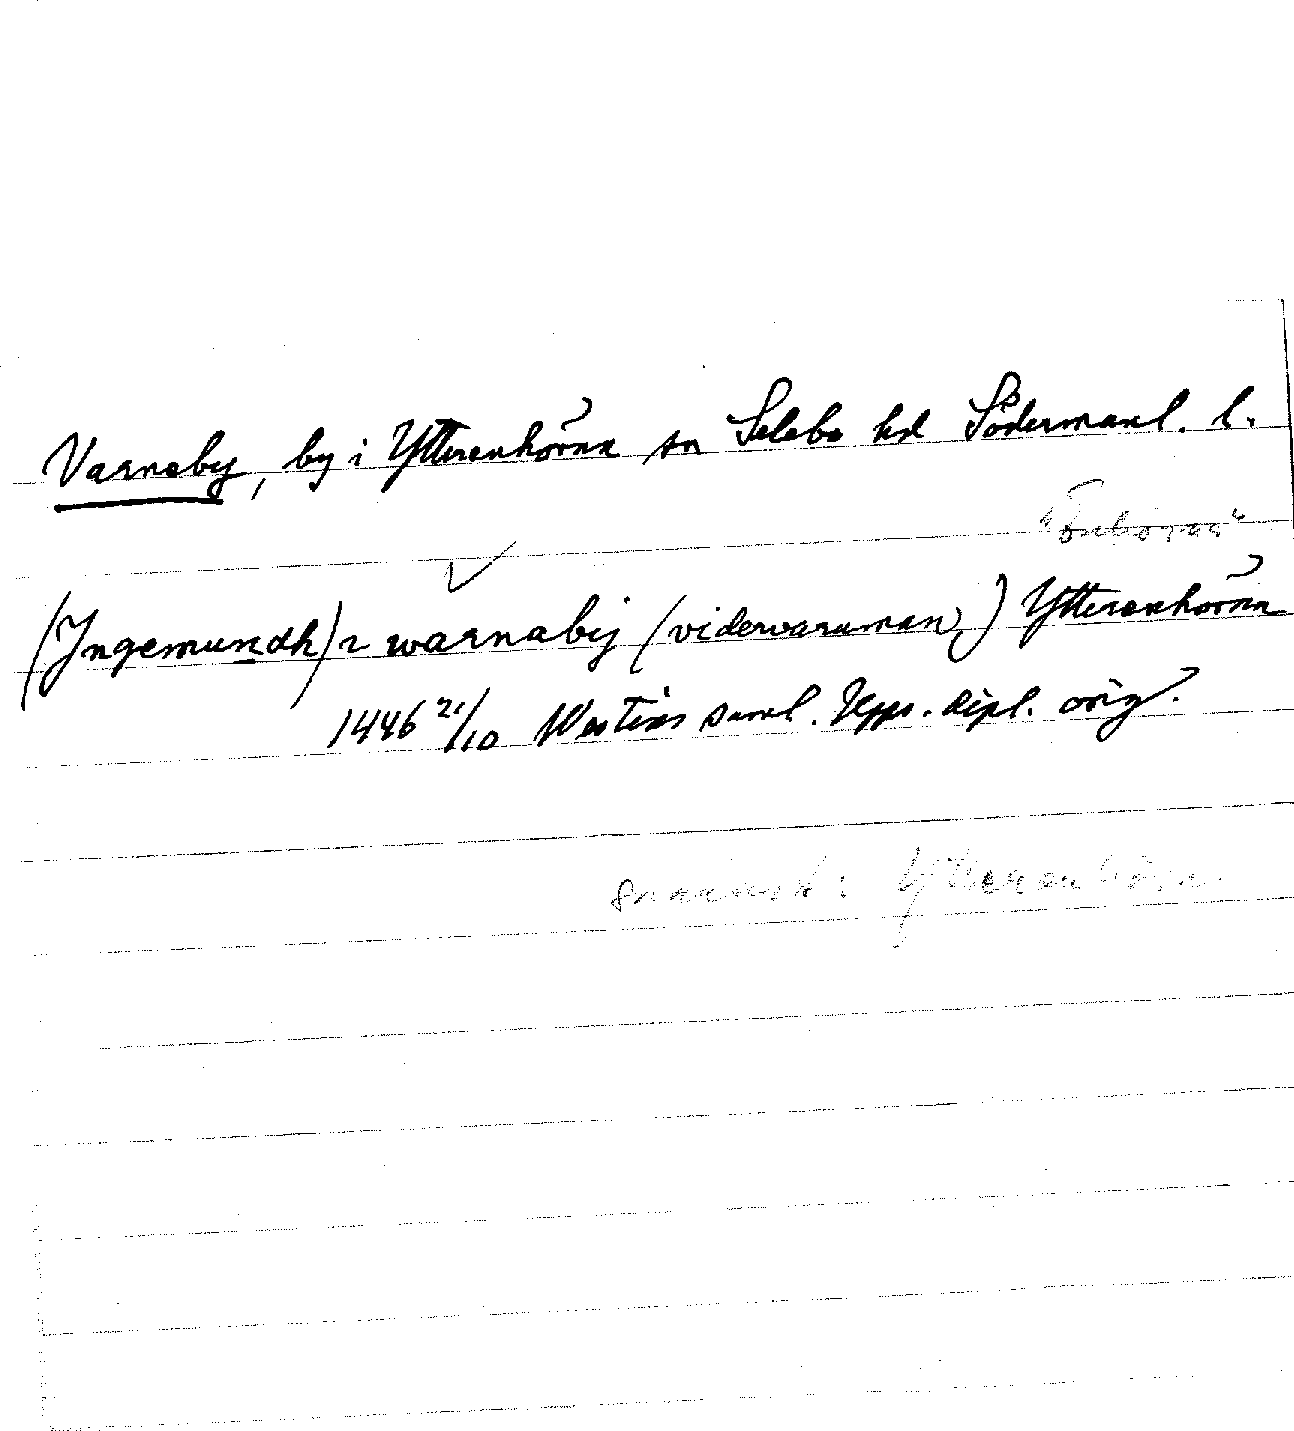 Varnaby, by i Ytterenhörna sn Selebo hd Södermanl. l.
(Jngemundh) i warnabij (vidervaruman) Ytterenhörna
1446 21/10 Westins saml. Upps. dipl. orig.
Ytterenhörn.